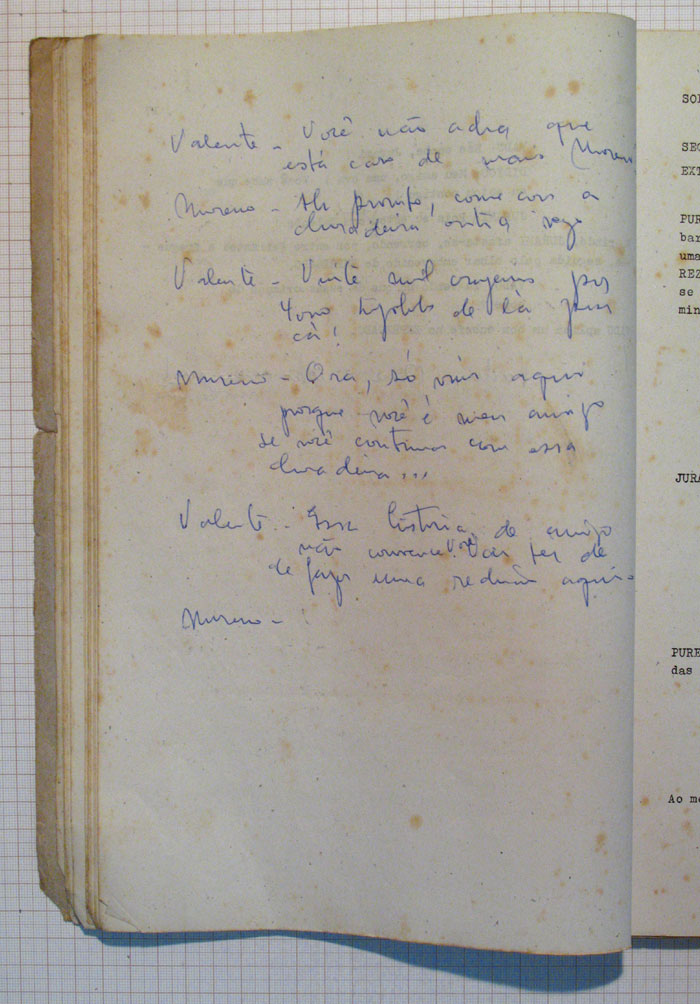 Valente - Você não acha que
está caro de mais Moreno
Moreno - Ah pronto, começou a
choradeira outra vez
Valente - Vinte mil cruzeiros por
4000 tijolos de la para
cá!
Moreno - Ora, só vim aqui
porque você é meu amigo
se você continuar com essa
choradeira...
Valente - Essa história de amigo
não convence. Você Vai ter de
de fazer uma redução aqui
Moreno -
SEC
EXT
PUR
bar
uma
REZ
se
min
JURA
PURE
das
Ao me